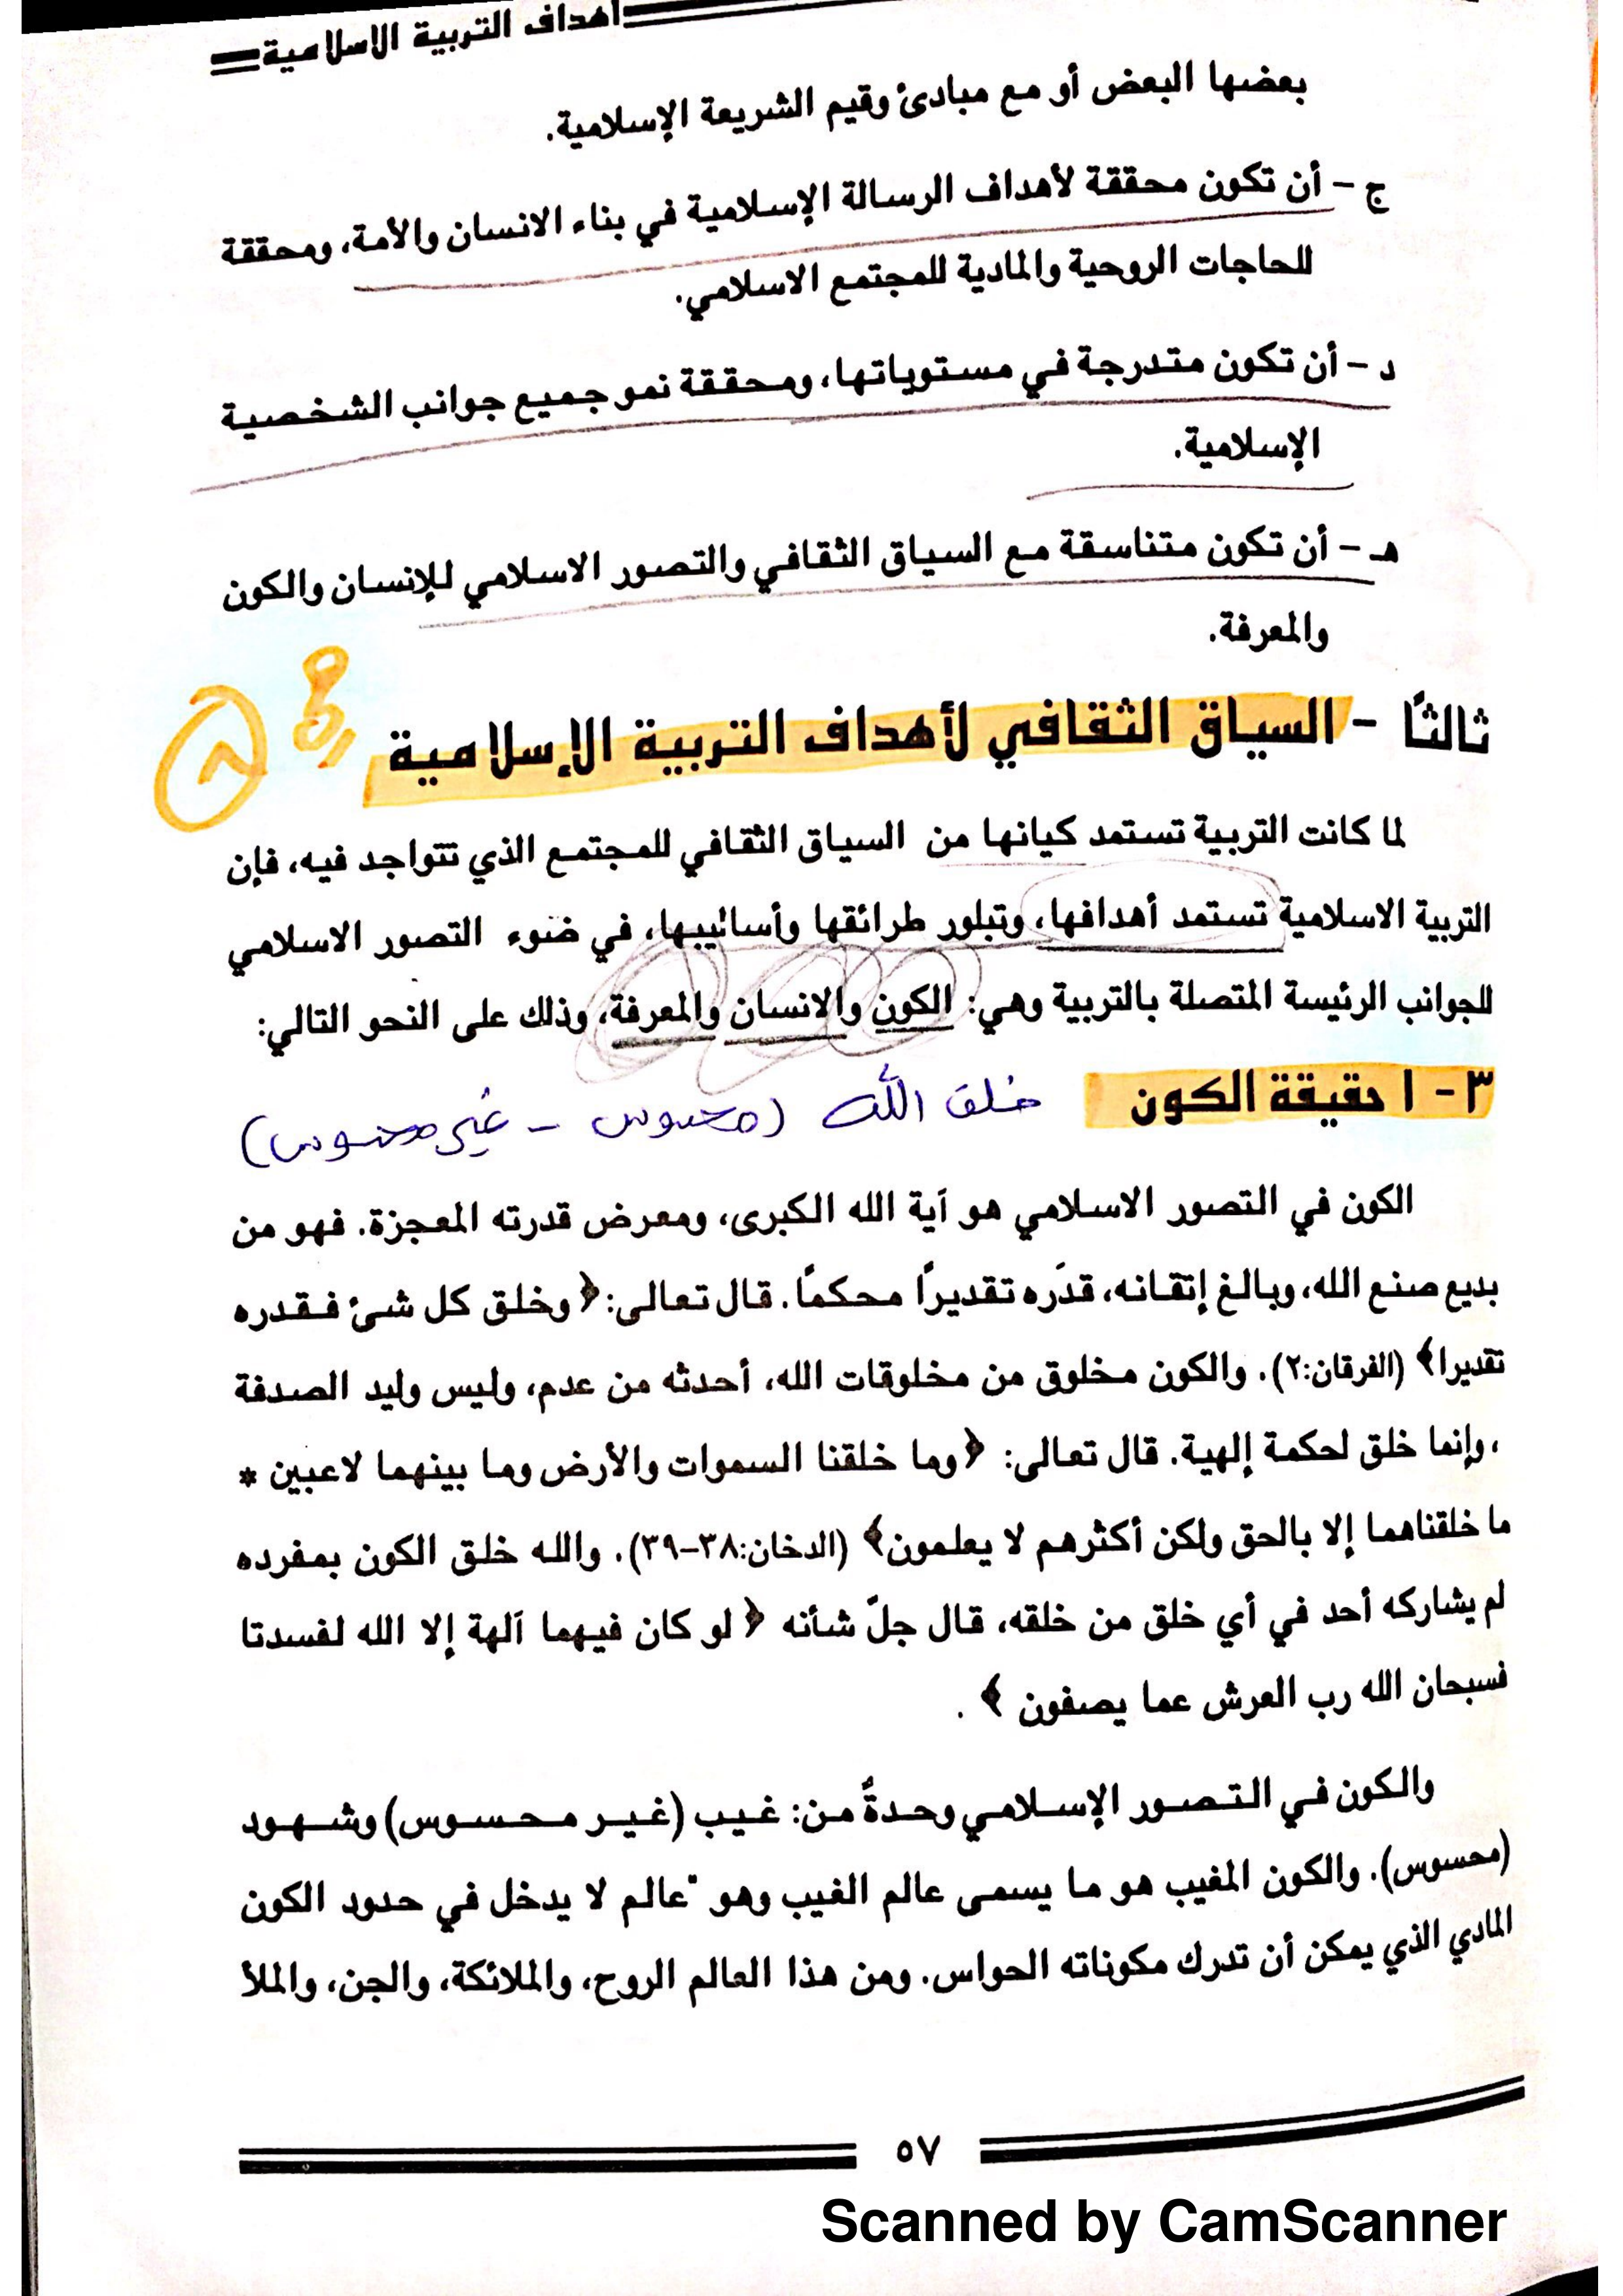 اهداف التربية الاسلامية
بعضها البعض أو مع مبادئ وقيم الشريعة الإسلامية.
ج - أن تكون محققة لأهداف الرسالة الإسلامية في بناء الانسان والأمة، ومحققة
للحاجات الروحية والمادية للمجتمع الاسلامي.
د - أن تكون متدرجة في مستوياتها، ومحققة نمو جميع جوانب الشخصية
الإسلامية.
هـ - أن تكون متناسقة مع السياق الثقافي والتصور الاسلامي للإنسان والكون
والمعرفة.
ثالثًا - السياق الثقافي لأهداف التربية الإسلامية
٨
لما كانت التربية تستمد كيانها من السياق الثقافي للمجتمع الذي تتواجد فيه، فإن
التربية الاسلامية تستمد أهدافها، وتبلور طرائقها وأساليبها، في ضوء التصور الاسلامي
للجوانب الرئيسة المتصلة بالتربية وهي: الكون والانسان والمعرفة، وذلك على النحو التالي:
٣ - ١ حقيقة الكون خلق الله (محسوس - غير محسوس)
الكون في التصور الاسلامي هو آية الله الكبرى، ومعرض قدرته المعجزة. فهو من
بديع صنع الله، وبالغ إتقانه، قدَره تقديرًا محكمًا. قال تعالى: ﴿وخلق كل شئ فقدره
تقديرا﴾ (الفرقان:٢). والكون مخلوق من مخلوقات الله، أحدثه من عدم، وليس وليد الصدفة
، وإنما خلق لحكمة إلهية. قال تعالى: ﴿وما خلقنا السموات والأرض وما بينهما لاعبين *
ما خلقناهما إلا بالحق ولكن أكثرهم لا يعلمون﴾ (الدخان:٣٨-٣٩). والله خلق الكون بمفرده
لم يشاركه أحد في أي خلق من خلقه، قال جلّ شأنه ﴿ لو كان فيهما آلهة إلا الله لفسدتا
فسبحان الله رب العرش عما يصفون ﴾ .
والكون في التصور الإسلامي وحدةً من: غيب (غير محسوس) وشهود
(محسوس). والكون المغيب هو ما يسمى عالم الغيب وهو "عالم لا يدخل في حدود الكون
المادي الذي يمكن أن تدرك مكوناته الحواس. ومن هذا العالم الروح، والملائكة، والجن، والملأ
٥٧
Scanned by CamScanner